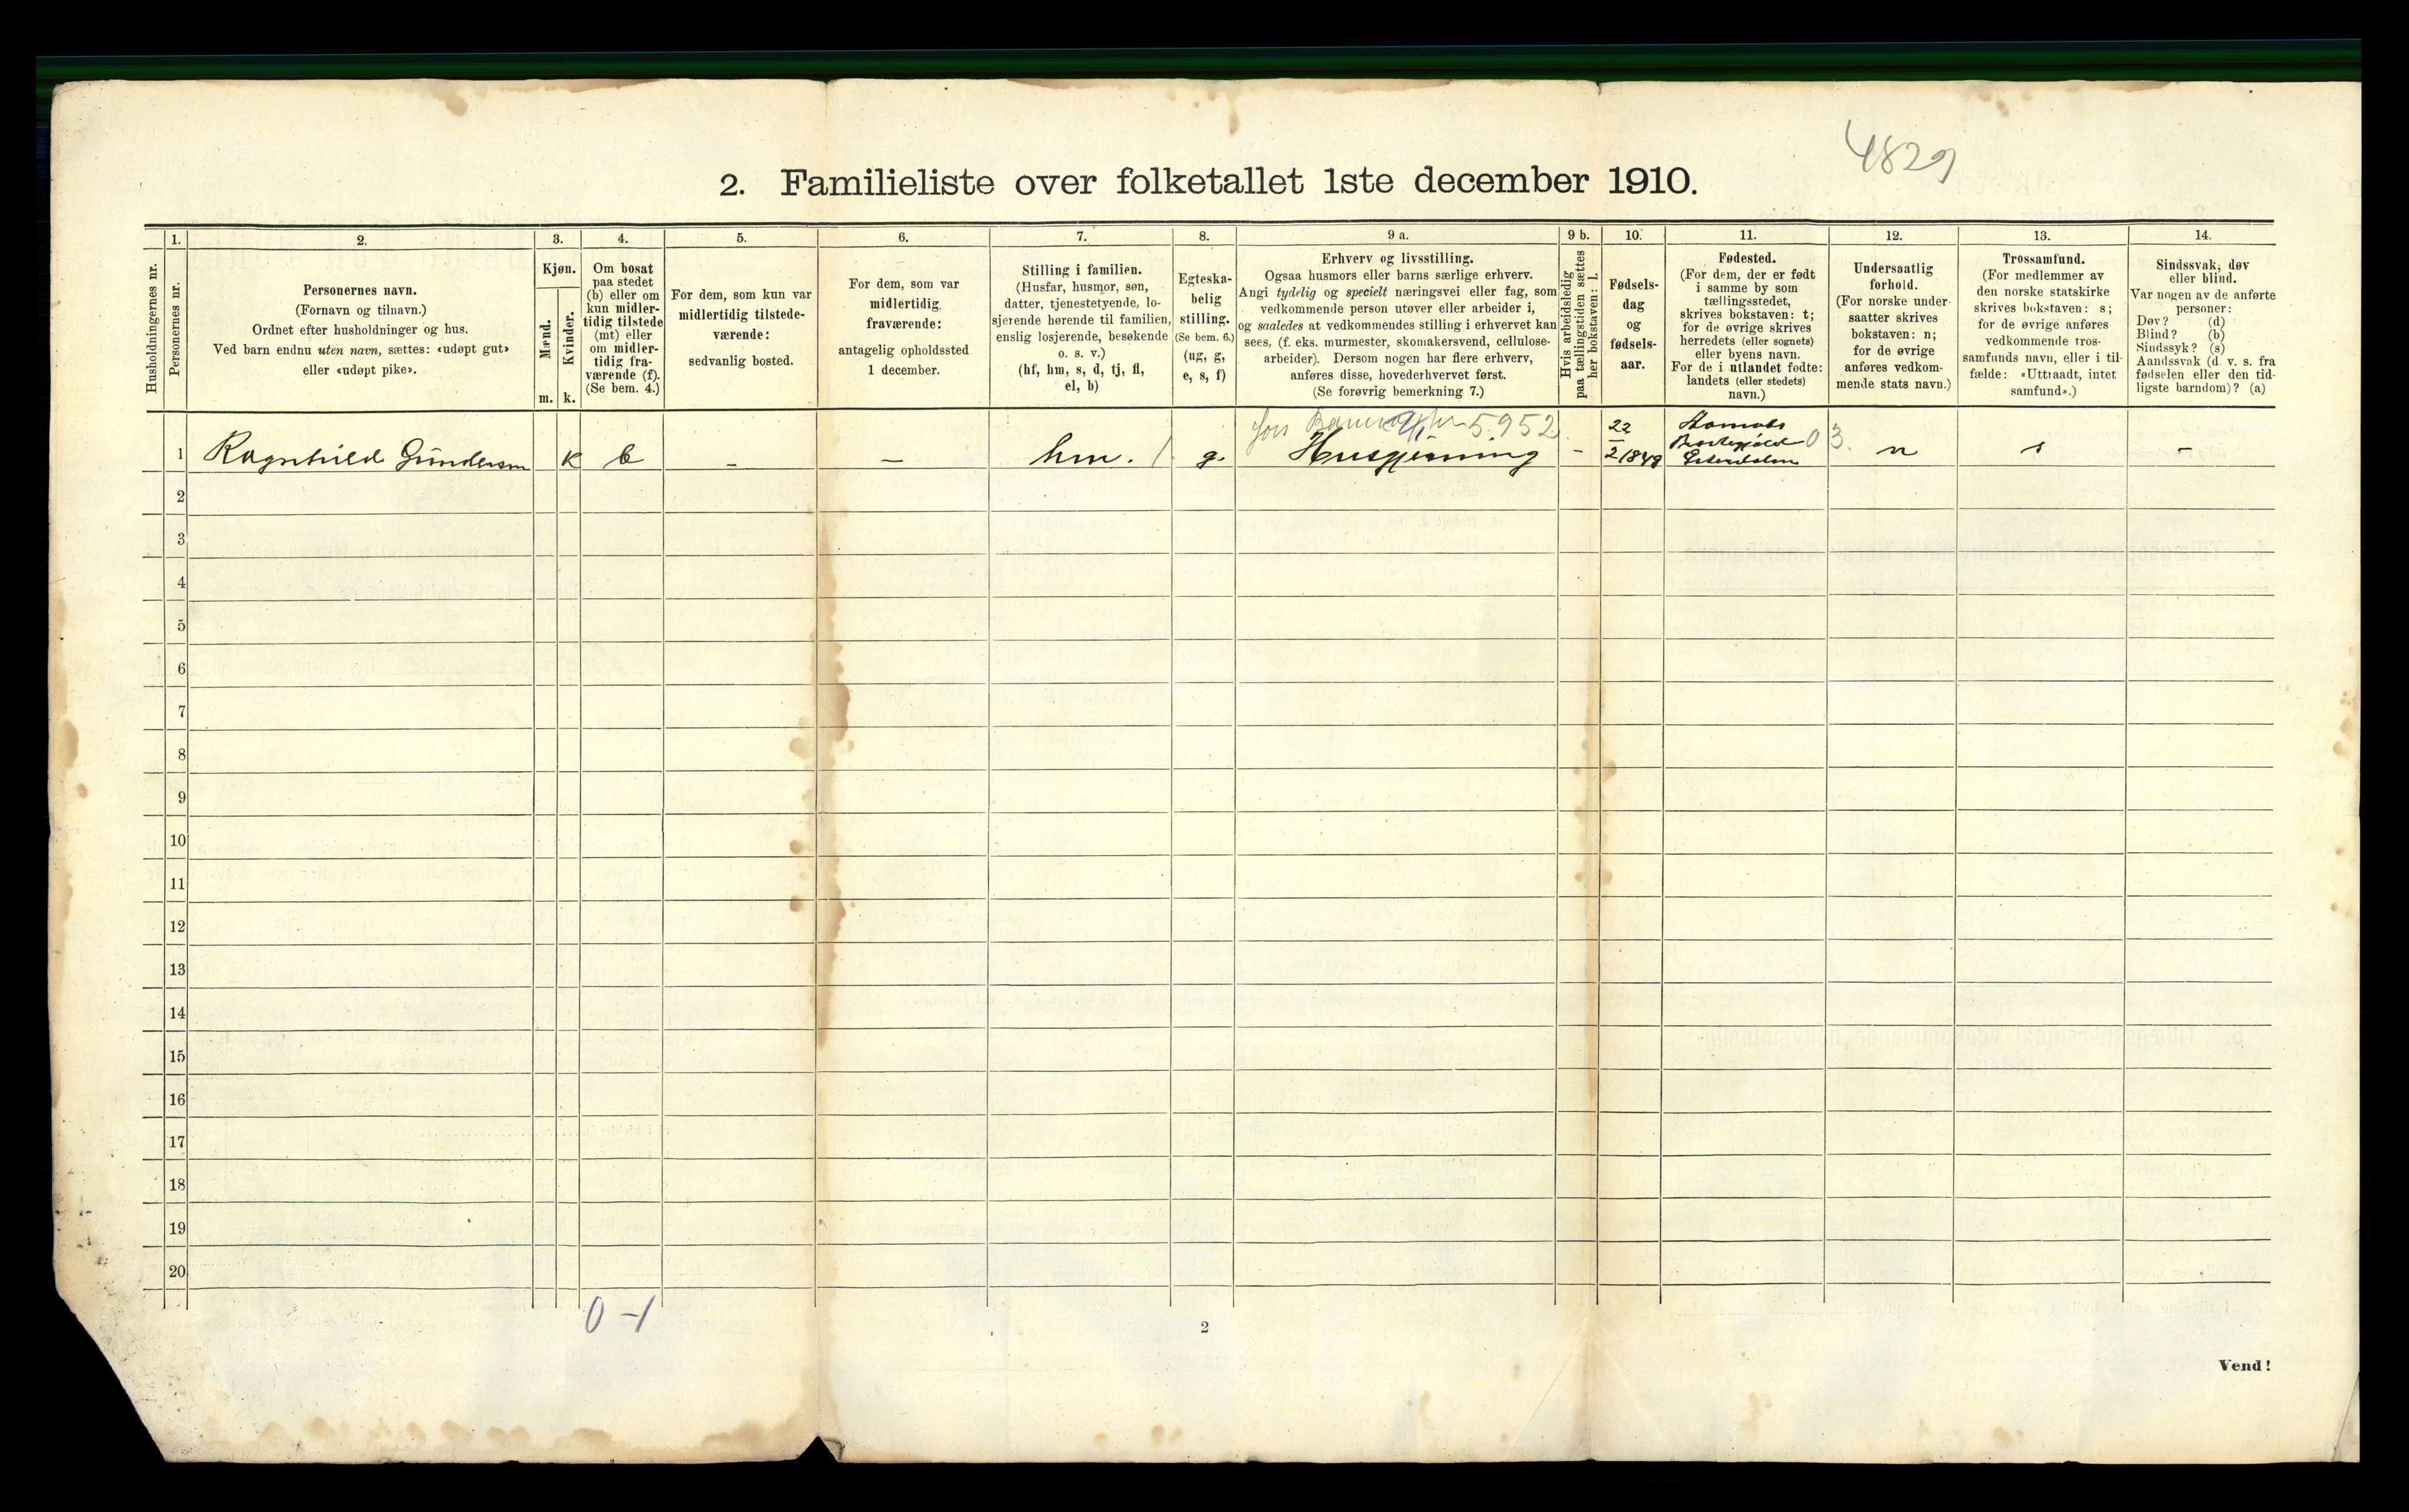 4829
2. Familieliste over folketallet 1ste december 1910.
Husholdningernes nr.
1.
Personernes nr.
2.
Personernes navn.
(Fornavn og tilnavn.)
Ordnet efter husholdninger og hus.
Ved barn endnu uten navn, sættes: «udøpt gut»
eller «udøpt pike».
3.
Kjøn.
Mænd.
m.
Kvinder.
k.
4.
Om bosat
paa stedet
(b) eller om
kun midler-
tidig tilstede
(mt) eller
om midler-
tidig fra-
værende (f).
(Se bem. 4.)
5.
For dem, som kun var
midlertidig tilstede-
værende:
sedvanlig bosted.
6.
For dem, som var
midlertidig
fraværende:
antagelig opholdssted
1 december.
7.
Stilling i familien.
(Husfar, husmor, søn,
datter, tjenestetyende, lo-
sjerende hørende til familien,
enslig losjerende, besøkende
o. s. v.)
(hf, hm, s, d, tj, fl,
el, b)
8.
Egteska-
belig
stilling.
(Se bem. 6.)
(ug, g,
e, s, f)
9 a.
Erhverv og livsstilling.
Ogsaa husmors eller barns særlige erhverv.
Angi tydelig og specielt næringsvei eller fag, som
vedkommende person utøver eller arbeider i,
og saaledes at vedkommendes stilling i erhvervet kan
sees, (f. eks. murmester, skomakersvend, cellulose-
arbeider). Dersom nogen har flere erhverv,
anføres disse, hovederhvervet først.
(Se forøvrig bemerkning 7.)
9 b.
Hvis arbeidsledig
paa tællingstiden sættes
her bokstaven: l.
10.
Fødsels-
dag
og
fødsels-
aar.
11.
Fødested.
(For dem, der er født
i samme by som
tællingsstedet,
skrives bokstaven: t;
for de øvrige skrives
herredets (eller sognets)
eller byens navn.
For de i utlandet fødte:
landets (eller stedets)
navn.)
12.
Undersaatlig
forhold.
(For norske under-
saatter skrives
bokstaven: n;
for de øvrige
anføres vedkom-
mende stats navn.)
13.
Trossamfund.
(For medlemmer av
den norske statskirke
skrives bokstaven: s;
for de øvrige anføres
vedkommende tros-
samfunds navn, eller i til-
fælde: «Uttraadt, intet
samfund».)
14.
Sindssvak, døv
eller blind.
Var nogen av de anførte
personer:
Døv? (d)
Blind? (b)
Sindssyk? (s)
Aandssvak (d. v. s. fra
fødselen eller den tid-
ligste barndom)? (a)
5.952
1 Ragnhild Gundersen K b – – hm. g. Husgjerning – 22/2 1849 03. n s –
2
3
4
5
6
7
8
9
10
11
12
13
14
15
16
17
18
19
20
0 – 1
2
Vend!